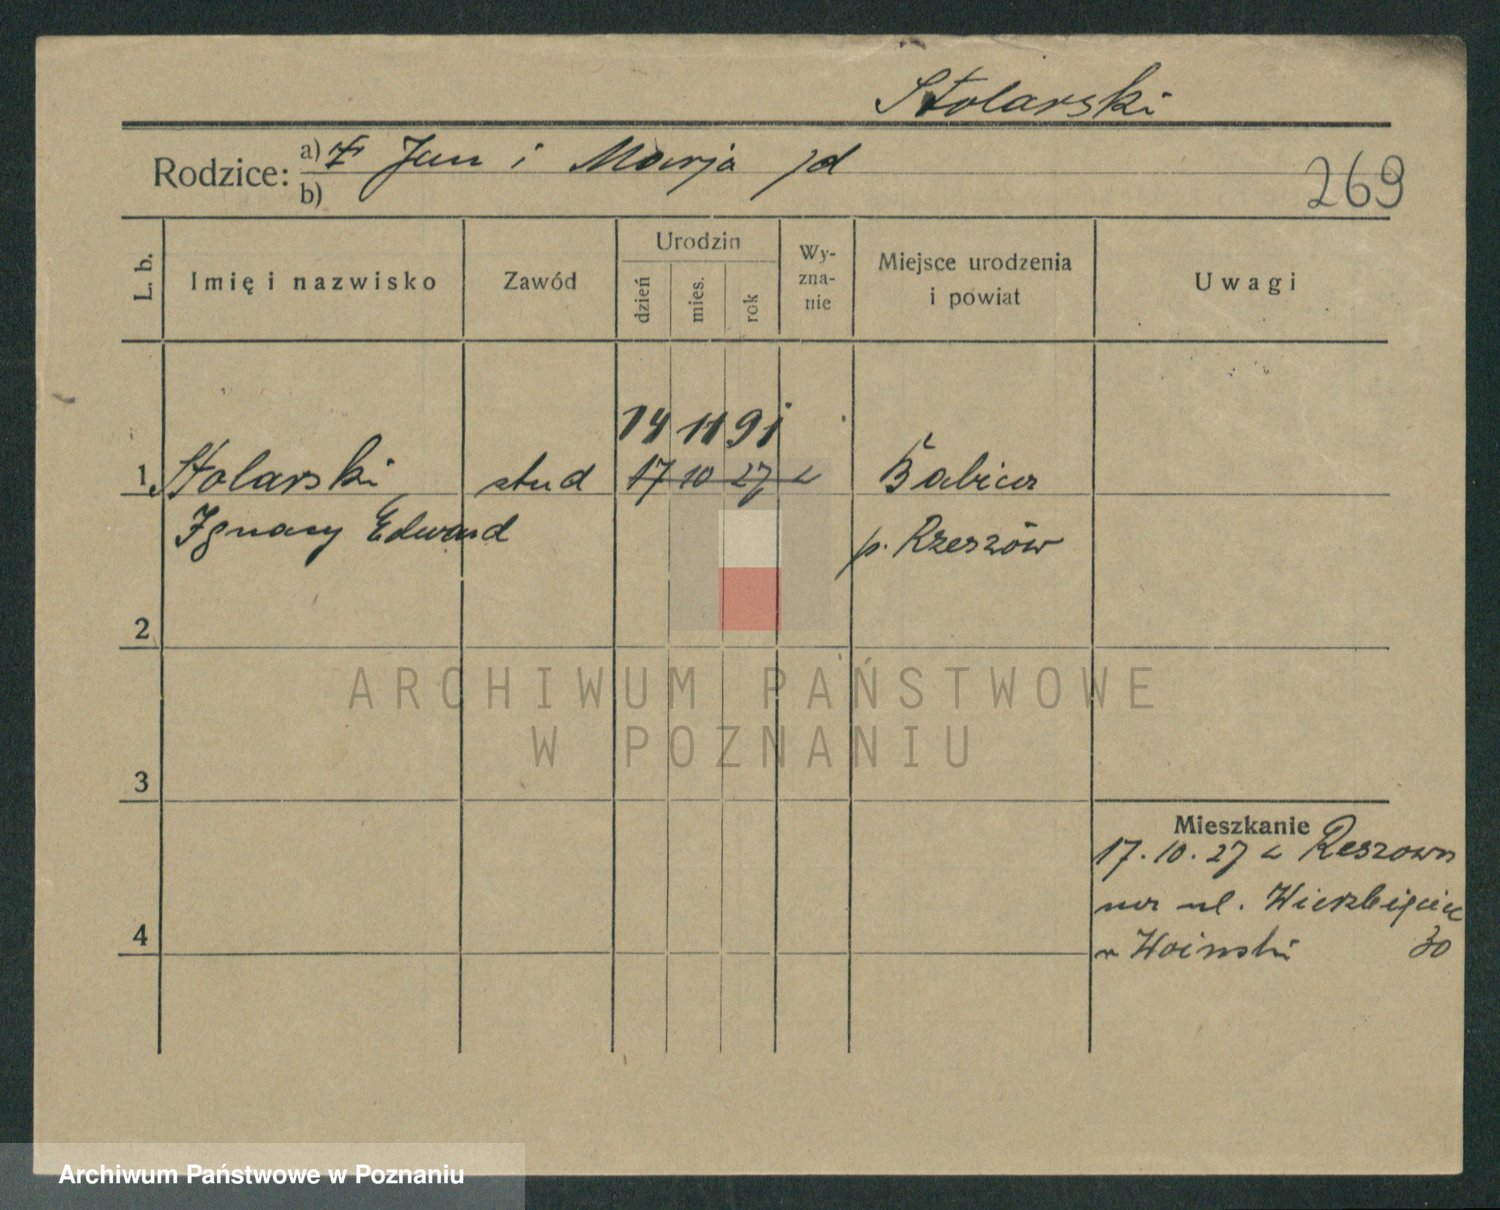 Stolarski
Rodzice: a) Jan i Marja jd
b)
269
L. b.
Imię i nazwisko
Zawód
Urodzin
dzień
mies.
rok
Wy-
zna-
nie
Miejsce urodzenia
i powiat
Uwagi
14 11 91
1 Stolarski stud 17 10 27 Babica
Ignacy Edward p. Rzeszów
2
ARCHIWUM PAŃSTWOWE
W POZNANIU
3
Mieszkanie
17. 10. 27 z Reszown
ul.
4
Woinski 30
Archiwum Państwowe w Poznaniu